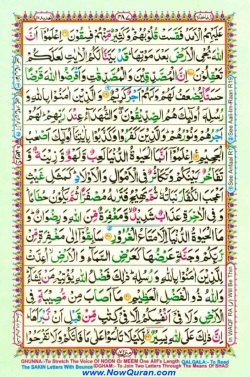 عَلَيْهِمُ الْاَمَدُ فَقَسَتْ قُلُوْبُهُمْ وَكَثِيْرٌ مِّنْهُمْ فٰسِقُوْنَ اِعْلَمُوْۤا اَنَّ
اللّٰهَ يُحْيِ الْاَرْضَ بَعْدَ مَوْتِهَا قَدْ بَيَّنَّا لَكُمُ الْاٰيٰتِ لَعَلَّكُمْ
تَعْقِلُوْنَ اِنَّ الْمُصَّدِّقِيْنَ وَالْمُصَّدِّقٰتِ وَاَقْرَضُوا اللّٰهَ قَرْضًا
حَسَنًا يُّضٰعَفُ لَهُمْ وَلَهُمْ اَجْرٌ كَرِيْمٌ وَالَّذِيْنَ اٰمَنُوْا بِاللّٰهِ وَ
رُسُلِهٖۤ اُولٰٓئِكَ هُمُ الصِّدِّيْقُوْنَ وَالشُّهَدَآءُ عِنْدَ رَبِّهِمْ لَهُمْ
اَجْرُهُمْ وَنُوْرُهُمْ وَالَّذِيْنَ كَفَرُوْا وَكَذَّبُوْا بِاٰيٰتِنَاۤ اُولٰٓئِكَ اَصْحٰبُ
الْجَحِيْمِ اِعْلَمُوْۤا اَنَّمَا الْحَيٰوةُ الدُّنْيَا لَعِبٌ وَّلَهْوٌ وَّزِيْنَةٌ وَّ
تَفَاخُرٌۢ بَيْنَكُمْ وَتَكَاثُرٌ فِى الْاَمْوَالِ وَالْاَوْلَادِ كَمَثَلِ غَيْثٍ
اَعْجَبَ الْكُفَّارَ نَبَاتُهٗ ثُمَّ يَهِيْجُ فَتَرٰىهُ مُصْفَرًّا ثُمَّ يَكُوْنُ حُطَامًا
وَفِى الْاٰخِرَةِ عَذَابٌ شَدِيْدٌ وَّمَغْفِرَةٌ مِّنَ اللّٰهِ وَرِضْوَانٌ وَ
مَا الْحَيٰوةُ الدُّنْيَاۤ اِلَّا مَتَاعُ الْغُرُوْرِ سَابِقُوْۤا اِلٰى مَغْفِرَةٍ مِّنْ
رَّبِّكُمْ وَجَنَّةٍ عَرْضُهَا كَعَرْضِ السَّمَآءِ وَالْاَرْضِ اُعِدَّتْ لِلَّذِيْنَ
اٰمَنُوْا بِاللّٰهِ وَرُسُلِهٖ ذٰلِكَ فَضْلُ اللّٰهِ يُؤْتِيْهِ مَنْ يَّشَآءُ
وَاللّٰهُ ذُو الْفَضْلِ الْعَظِيْمِ مَاۤ اَصَابَ مِنْ مُّصِيْبَةٍ فِى
الْاَرْضِ وَلَا فِىْۤ اَنْفُسِكُمْ اِلَّا فِىْ كِتٰبٍ مِّنْ قَبْلِ اَنْ نَّبْرَاَهَا
اِنَّ ذٰلِكَ عَلَى اللّٰهِ يَسِيْرٌ لِّكَيْلَا تَاْسَوْا عَلٰى مَا فَاتَكُمْ وَلَا تَفْرَحُوْا
GHUNNA:-To Stretch The Voice Of NOON Or MEEM One Alif's Length QALQALA:- To Read
The SAKIN Letters With Bounce IDGHAM:- To Join Two Letters Through The Means Of SHAD
www.NowQuran.com